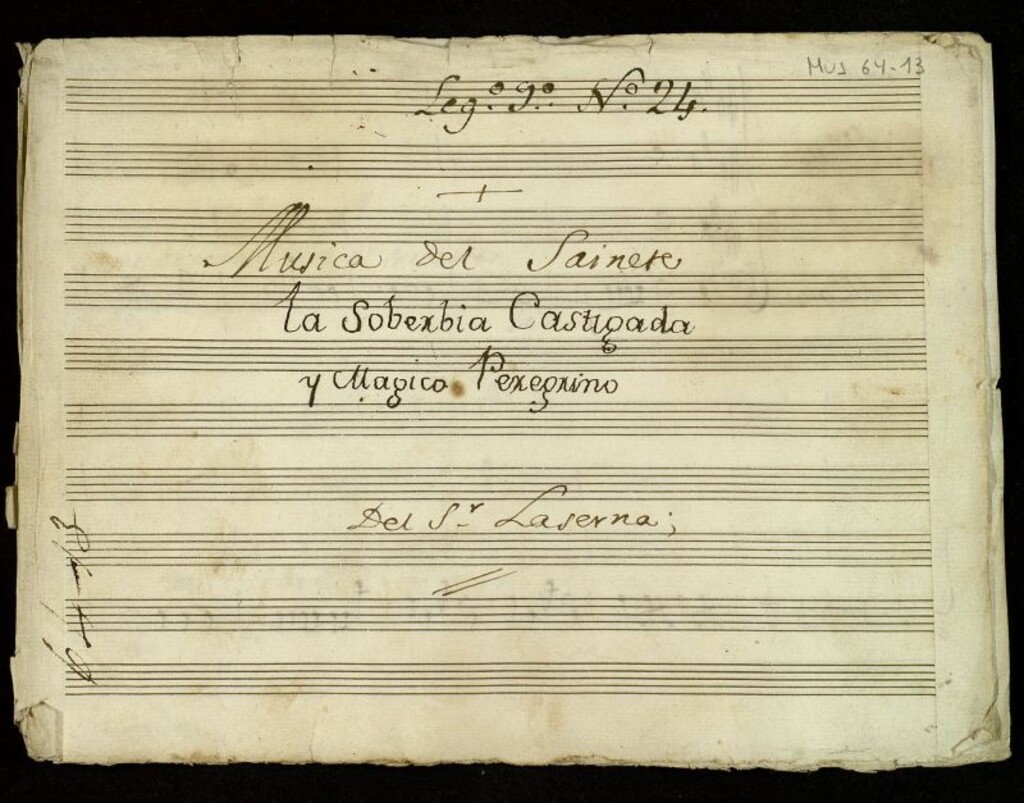 Mus 64-13
Leg.º 9.º Nº 24.
Musica del Sainete
la Soberbia Castigada
y Magico Peregrino
Del S.r Laserna;